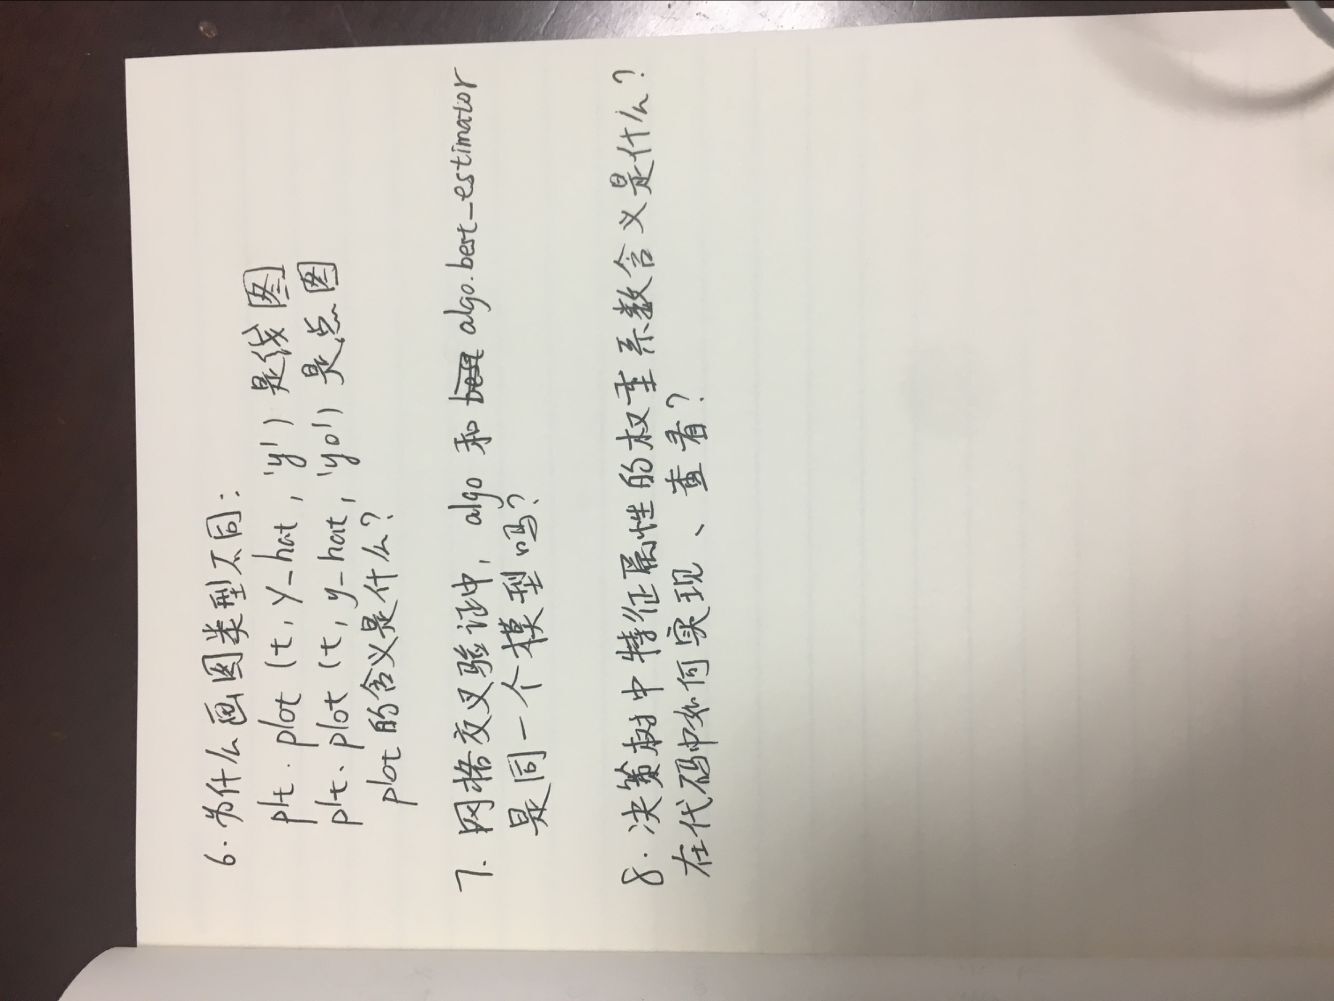 6. 为什么画图类型不同:
plt.plot (t, y_hat, 'y') 是线图
plt.plot (t, y_hat, 'yo') 是点图
plot 的含义是什么?
7. 网格交叉验证中, algo 和 algo.best_estimator
是同一个模型吗?
8. 决策树中特征属性的权重系数含义是什么?
在代码中如何实现、查看?